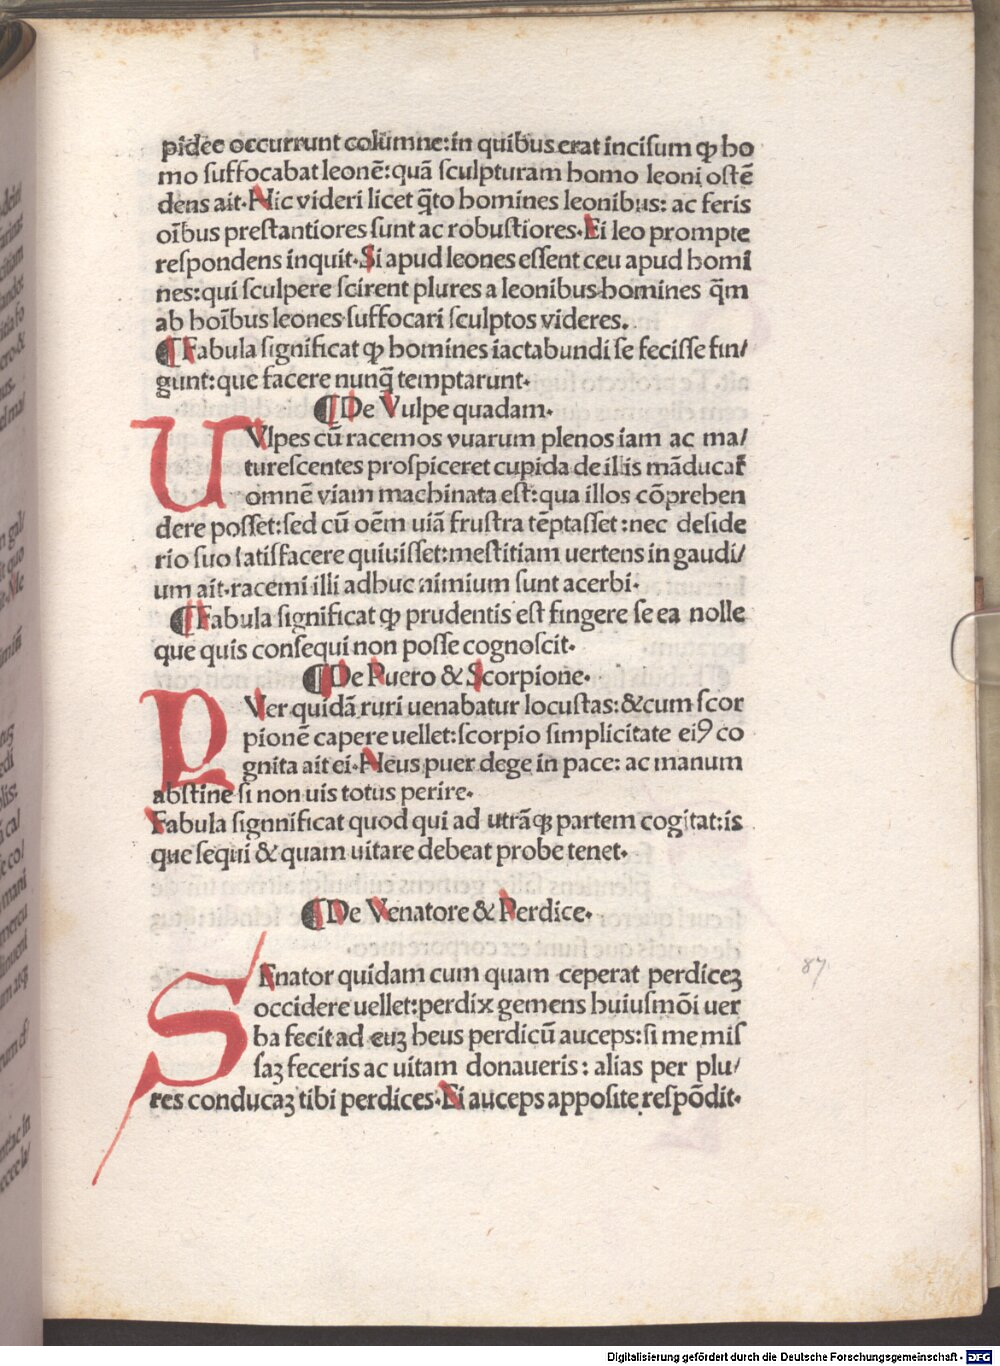 pidee occurrunt columne: in quibus erat incisum ꝙ ho
mo suffocabat leonē: quā sculpturam homo leoni ostē
dens ait. Hic videri licet q̄to homines leonibus: ac feris
oībus prestantiores sunt ac robustiores. Ei leo prompte
respondens inquit. Si apud leones essent ceu apud homi
nes: qui sculpere scirent plures a leonibus homines q̄m
ab hoībus leones suffocari sculptos videres.
¶ Fabula significat ꝙ homines iactabundi se fecisse fin/
gunt: que facere nunq̄ temptarunt.
¶ De Vulpe quadam.
U Vlpes cū racemos vuarum plenos iam ac ma/
turescentes prospiceret cupida de illis māducar̄
omnē viam machinata est: qua illos cōprehen
dere posset: sed cū oēm uiā frustra tēptasset: nec deside
rio suo satisfacere quiuisset: mestitiam uertens in gaudi/
um ait. racemi illi adhuc nimium sunt acerbi.
¶ Fabula significat ꝙ prudentis est fingere se ea nolle
que quis consequi non posse cognoscit.
¶ De Puero & Scorpione.
P Ver quidā ruri uenabatur locustas: & cum scor
pionē capere uellet: scorpio simplicitate eiꝰ co
gnita ait ei. Heus puer dege in pace: ac manum
abstine si non uis totus perire.
Fabula signnificat quod qui ad utrāqꝫ partem cogitat: is
que sequi & quam uitare debeat probe tenet.
¶ De Venatore & Perdice.
S Enator quidam cum quam ceperat perdiceꝫ
occidere uellet: perdix gemens huiusmōi uer
ba fecit ad euꝫ heus perdicū auceps: si me mis
saꝫ feceris ac uitam donaueris: alias per plu/
res conducaꝫ tibi perdices. Ei auceps apposite respōdit.
87
Digitalisierung gefördert durch die Deutsche Forschungsgemeinschaft - DFG